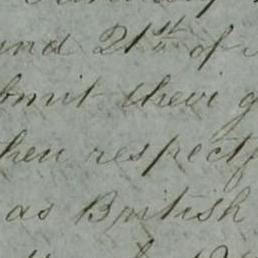 and 21st of
bmit their g
hen respectf
as British